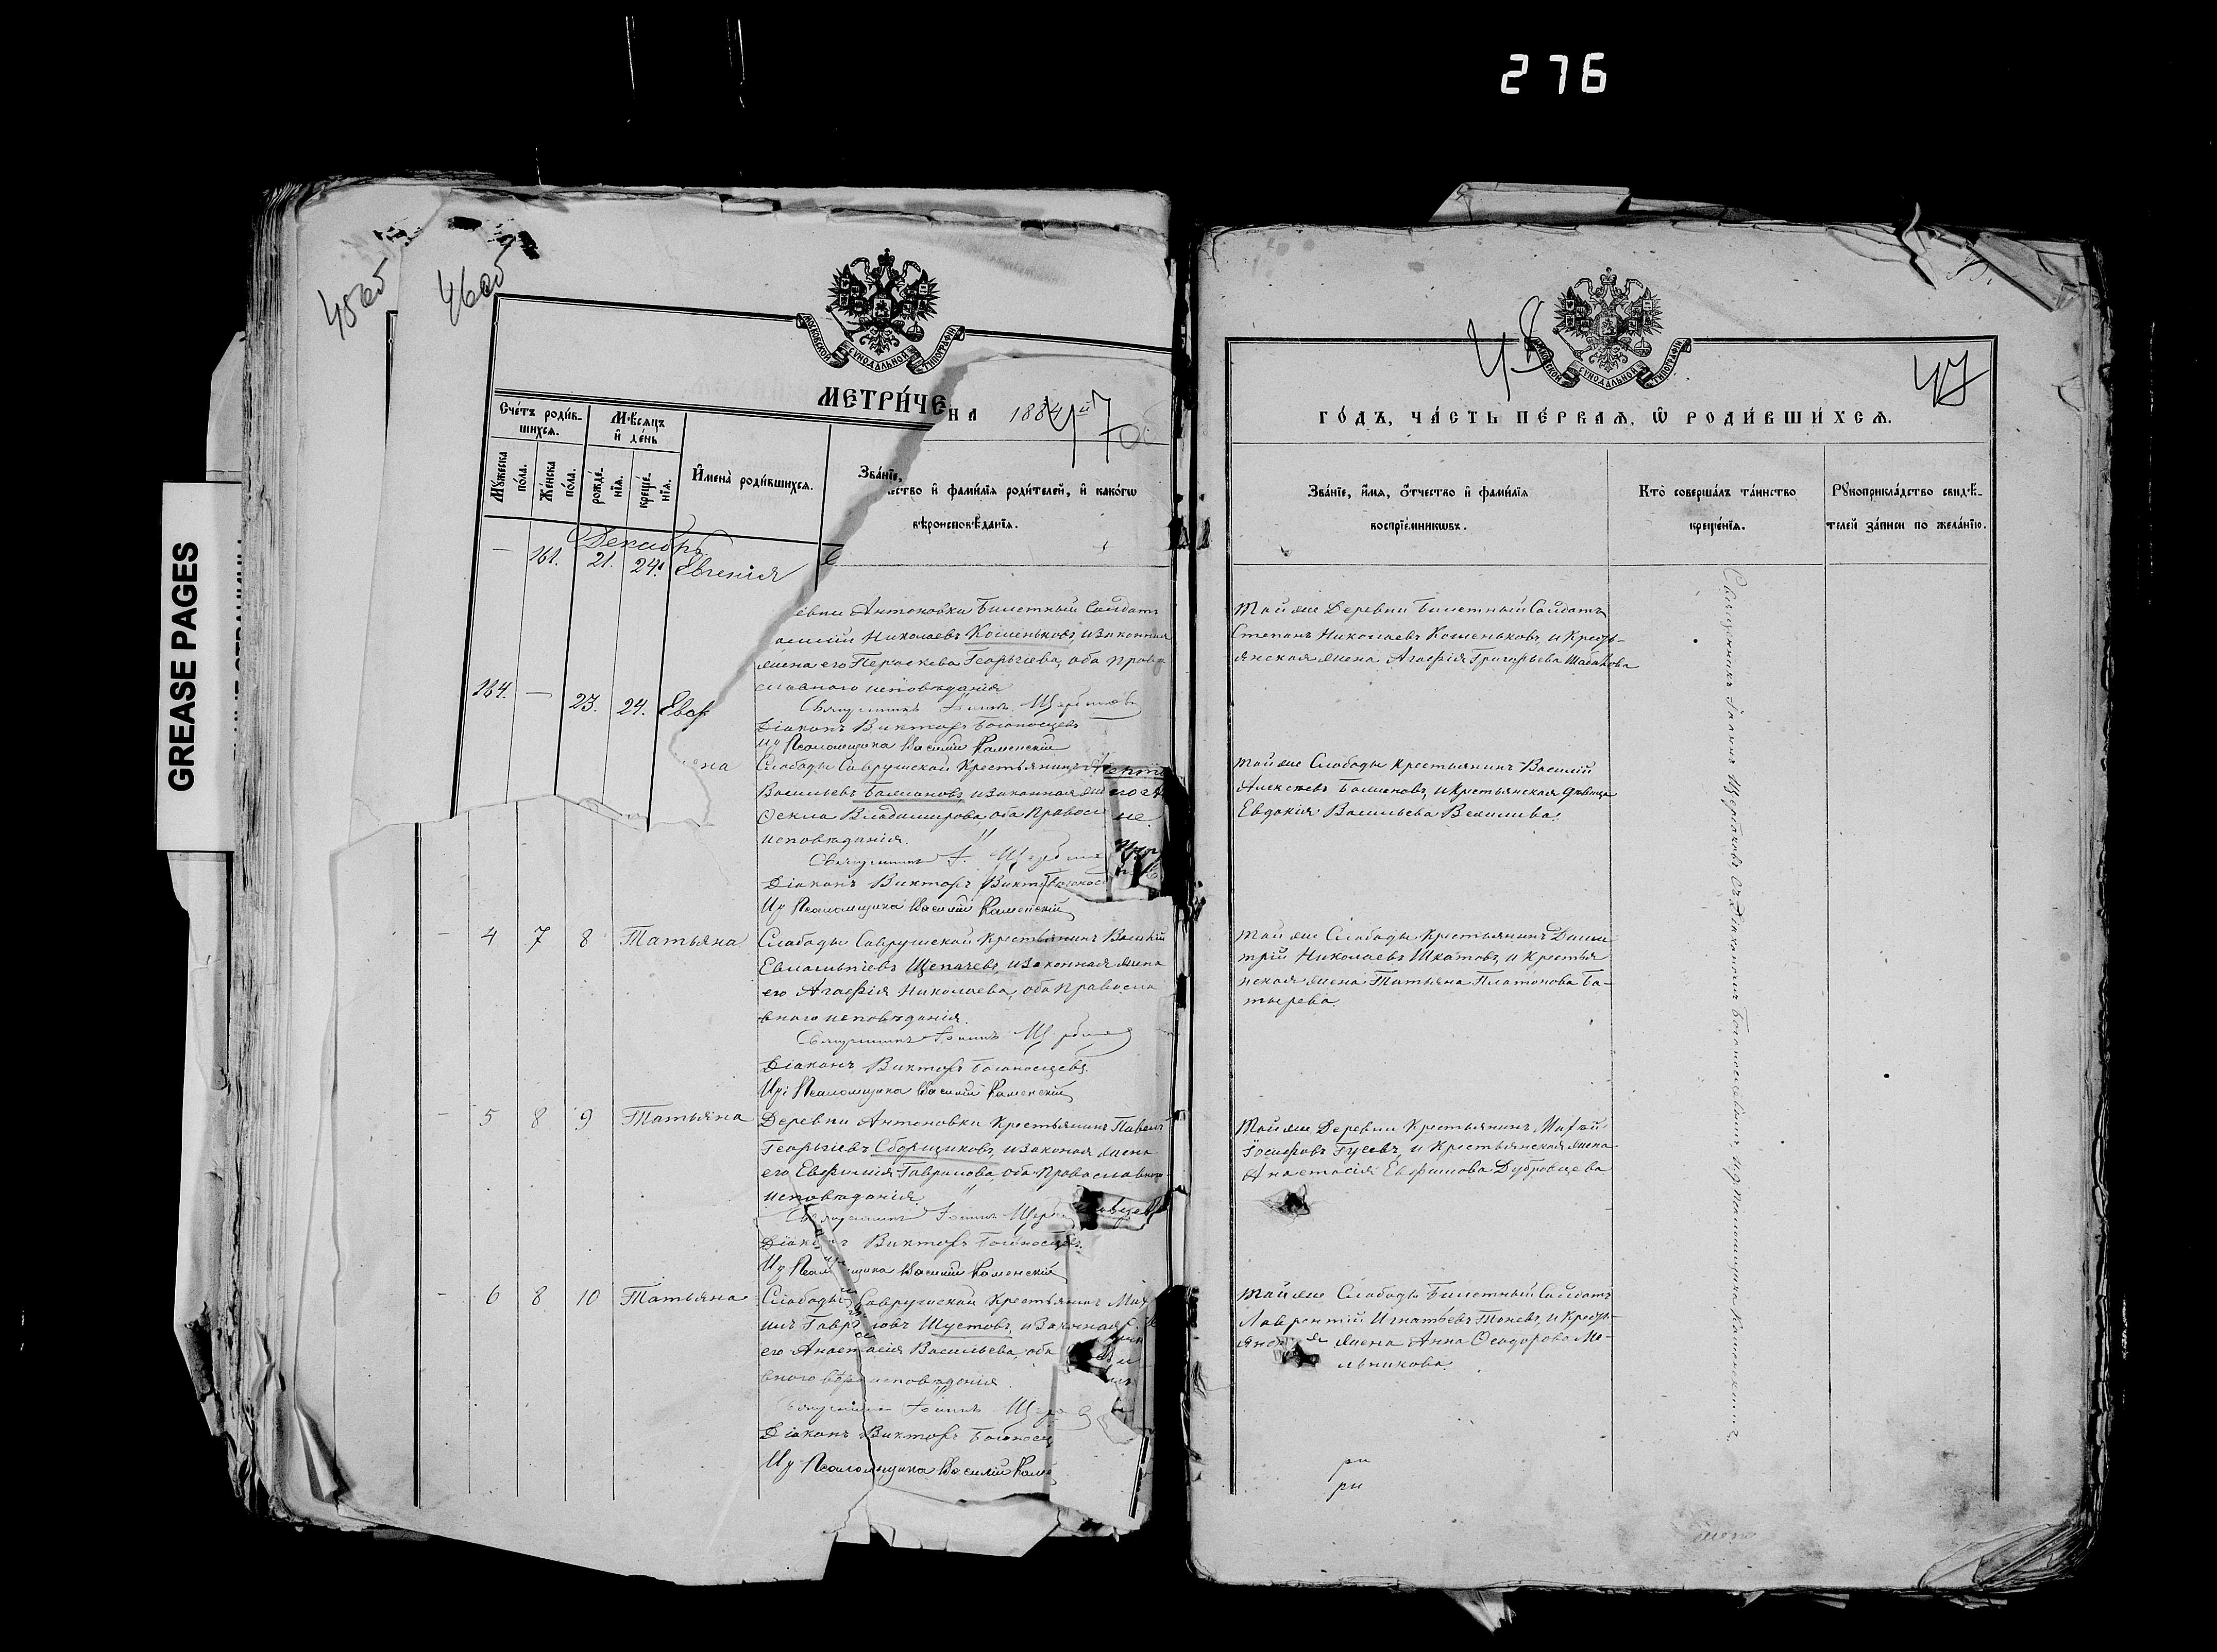 276
45 об
46 об
МОСКОВСКОЙ СѴНОДАЛЬНОЙ ТИПОГРАФІИ
МЕТРИ́ЧЕ
НА 1884
47 об
Сче́тъ роди́в-
шихсѧ.
Мѣ́сѧцъ
и҆ де́нь
Мꙋ́жеска по́ла.
Же́нска по́ла.
рожде́-
нїѧ.
креще́-
нїѧ.
И҆мена̀ роди́вшихсѧ.
Зва́нїе,
ество и҆ фами́лїѧ роди́телей, и҆ како́гѡ
вѣроисповѣ́данїѧ.
Декабрь
— 161. 21. 24. Евгенія
164. — 23. 24. Евс
евни Антоновки Билетный Солдатъ
Николаевъ Кошеньковъ, и законная
жена его Параскева Георгіева, оба право
славного исповѣданія
Священникъ Іоаннъ Щербаковъ
Діаконъ Викторъ Богоносцевъ
Иу Псаломщика Василій Каменскій
на Слободы Саврушской Крестьянинъ
Васильевъ Балшановъ, и законная
Ѳекла Владимирова, оба Правосл
исповѣданія.
Священникъ І. Щерба
Діаконъ Викторъ Богонос
Иу Псаломщика Василій Каменскій
— 4 7 8 Татьяна Слободы Саврушской Крестьянинъ Василій
Евлампіевъ Щепачевъ, и законная жена
его Агафія Николаева, оба Правосла
вного исповѣданія.
Священникъ Іоаннъ Щербаковъ
Діаконъ Викторъ Богоносцевъ.
Иу Псаломщика Василій Каменскій
— 5 8 9 Татьяна Деревни Антоновки Крестьянинъ Павелъ
Георгіевъ Сборщиковъ, и законая жена
его Евфимія Гаврилова, оба Православного
исповѣданія
Священникъ Іоаннъ Щерба
Діаконъ Викторъ Богоносцевъ.
Иу Псаломщика Василій Каменскій
— 6 8 10 Татьяна Слободы Саврушской Крестьянинъ
Шустовъ, и законная
его Анастасія Васильева, оба
вного исповѣданія.
Священникъ Іоаннъ Щерб
Діаконъ Викторъ Богоносц
Иу Псаломщика Василій Каме
МОСКОВСКОЙ СѴНОДАЛЬНОЙ ТИПОГРАФІИ
47
ГО́ДЪ, ЧА́СТЬ ПЕ́РВАѦ, Ѿ РОДИ́ВШИХСѦ.
Зва́нїе, и҆́мѧ, ѻ҆́тчество и҆ фами́лїѧ
воспрїе́мникѡвъ.
Кто̀ соверша́лъ та́инство
креще́нїѧ.
Рꙋкоприкла́дство свидѣ́-
телей за́писи по жела́нїю.
Той же Деревни Билетный Солдатъ
Степанъ Николаевъ Кошеньковъ, и Кресть-
янская жена Агафія Григорьева Шабанова
Той же Слободы Крестьянинъ Василій
Алексѣевъ Балшановъ, и Крестьянская дѣвица
Евдокія Васильева
Той же Слободы Крестьянинъ Дими
трій Николаевъ Шкатовъ, и Крестья
нская жена Татьяна Платонова Ба-
тырева.
Той же Деревни Крестьянинъ Матѳей
Іосифовъ Гусевъ, и Крестьянская жена
Анастасія Евфимова Дубровцева
Той же Слободы Билетный Солдатъ
Лаврентій Игнатьевъ Тоневъ, и Кресть-
янск жена Анна Ѳеодорова Ме-
льникова.
Священникъ Іоаннъ Щербаковъ Съ Діакономъ Богоносцевымъ, иу псаломщика Каменскимъ.
ри
ри
GREASE PAGES